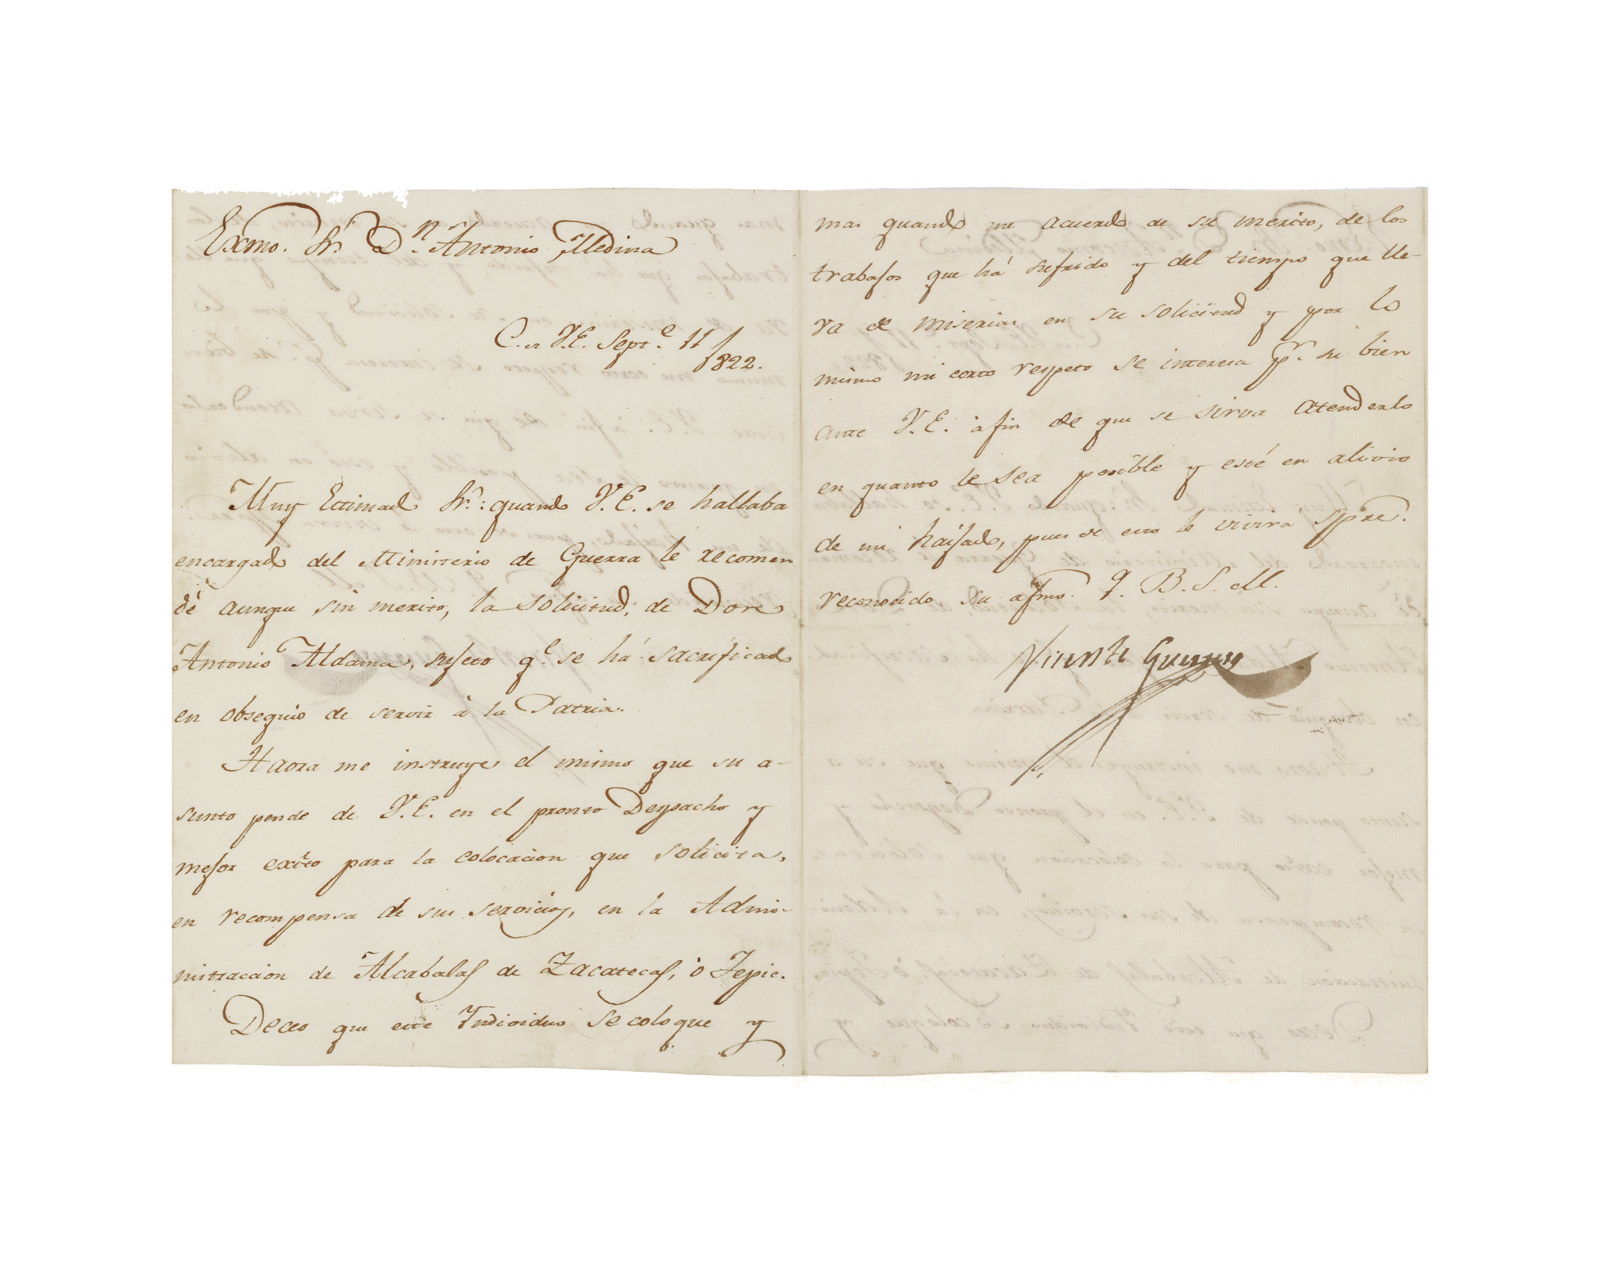 Exmo. Sr. Dn. Antonio Medina
C. de V.E. Septe. 11/
822.
Muy Estimado Sr.: quando V.E. se hallaba
encargado del Ministerio de Guerra le recomen
dé aunque sin merito, la solicitud, de Dore
Antonio Aldama, sujeto qe. se há sacrificado
en obsequio de servir á la Patria.
Haora me instruye el mismo que su a-
sunto pende de V.E. en el pronto Despacho y
mejor exîto para la colocacion que solicita,
en recompensa de sus servicios, en la Admi-
nistracion de Alcabalas de Zacatecas, ó Tepic.
Deceo que este Yndividuo se coloque y
mas quando me acuerdo de su merito, de los
trabajos que há sufrido y del tiempo que lle-
va de miserias en su solicitud y por lo
mismo mi corto respeto se interesa pr. su bien
ante V.E. áfin de que se sirva atenderlo
en quanto le sea posible y esté en alivio
de mi haijado, pues de eso le vivirá spre.
reconocido su afmo. q. B. S. M.
Vicente Guerrero